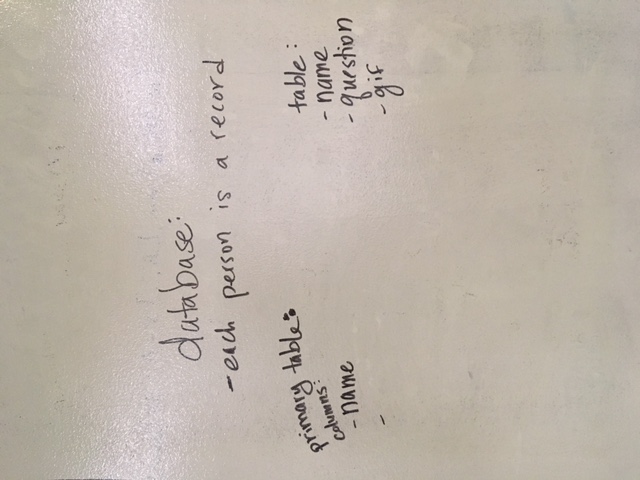 database:
-each person is a record
primary table:
columns:
-name
-
table:
-name
-question
-gif